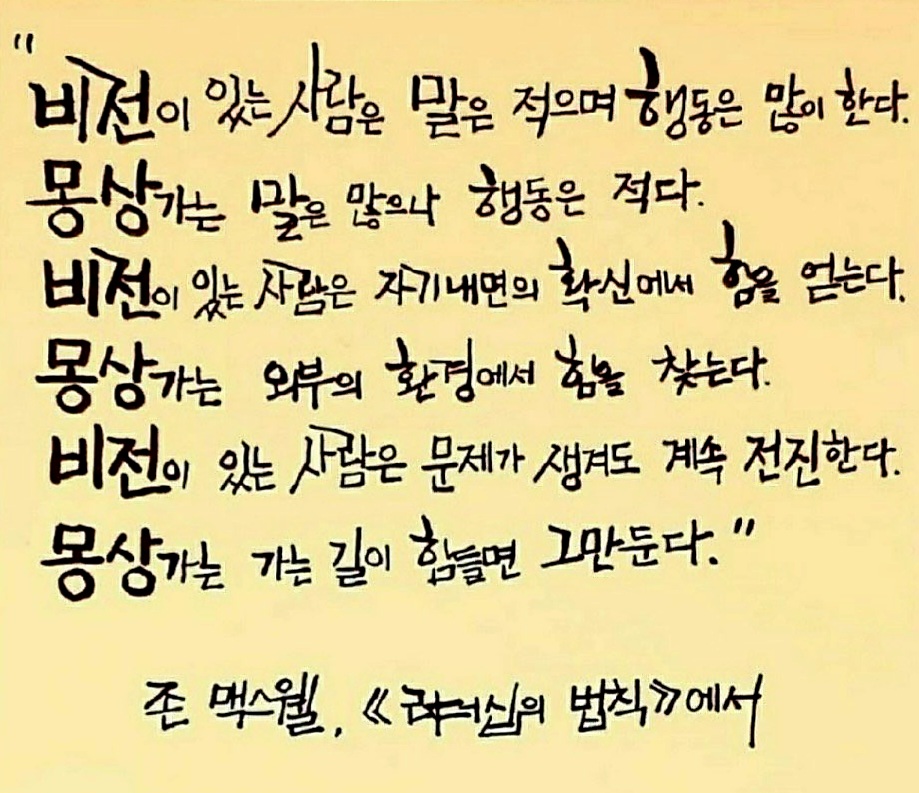 "
비전이 있는 사람은 말은 적으며 행동은 많이 한다.
몽상가는 말은 많으나 행동은 적다.
비전이 있는 사람은 자기내면의 확신에서 힘을 얻는다.
몽상가는 외부의 환경에서 힘을 찾는다.
비전이 있는 사람은 문제가 생겨도 계속 전진한다.
몽상가는 가는 길이 힘들면 그만둔다."
존 맥스웰, 《리더십의 법칙》에서